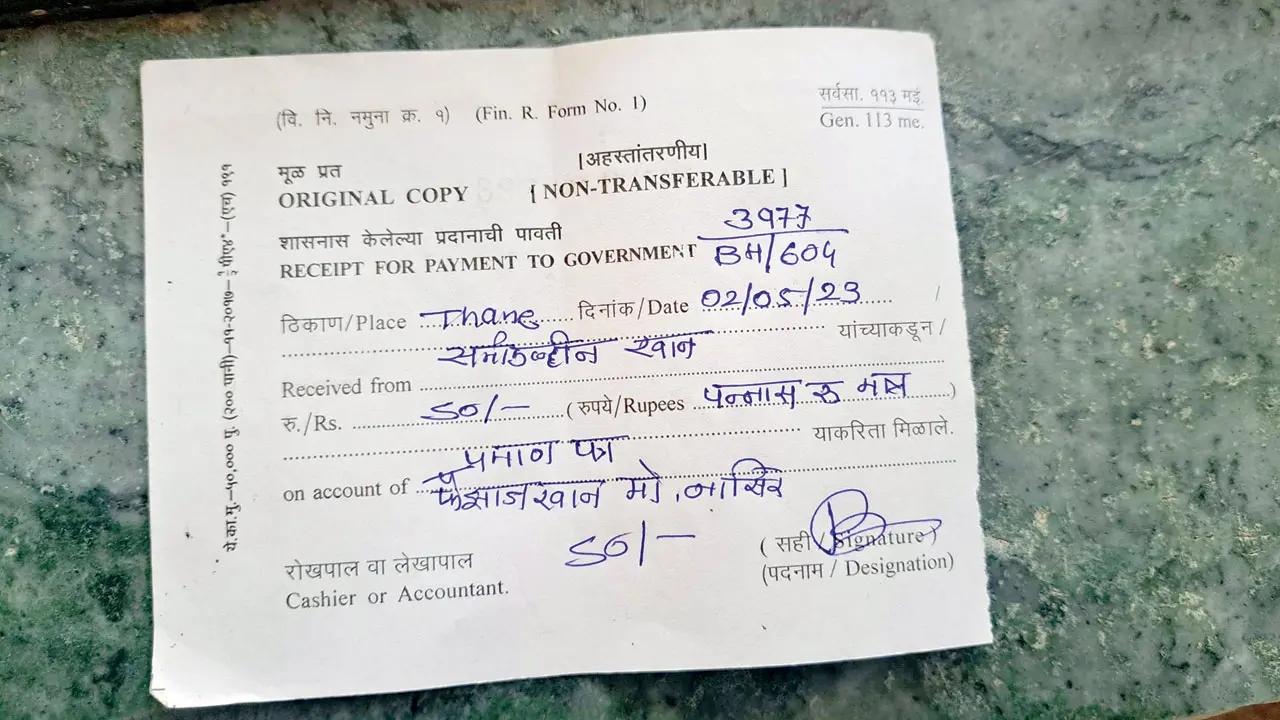 (वि. नि. नमुना क्र. १) (Fin. R. Form No. 1)
सर्वसा. ११३ मई.
Gen. 113 me.
मूळ प्रत [अहस्तांतरणीय]
ORIGINAL COPY [ NON-TRANSFERABLE ]
शासनास केलेल्या प्रदानाची पावती 3977
RECEIPT FOR PAYMENT TO GOVERNMENT BH/604
ठिकाण/Place Thane दिनांक/Date 02/05/23 /
खान यांच्याकडून /
Received from
रु./Rs. 50/- (रुपये/Rupees पन्नास रु मात्र)
प्रमान पत्र याकरिता मिळाले.
on account of खान मो. नासिर
50/-
रोखपाल वा लेखापाल ( सही / Signature )
Cashier or Accountant. (पदनाम / Designation)